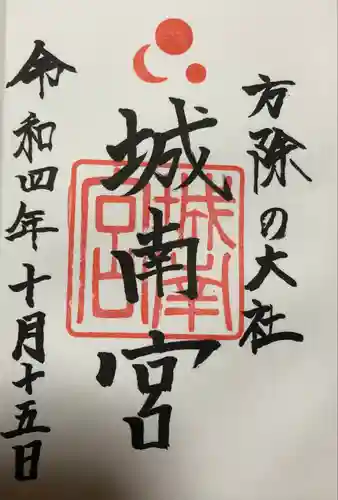 方除の大社
城南宮
令和四年十月十五日
城南宮